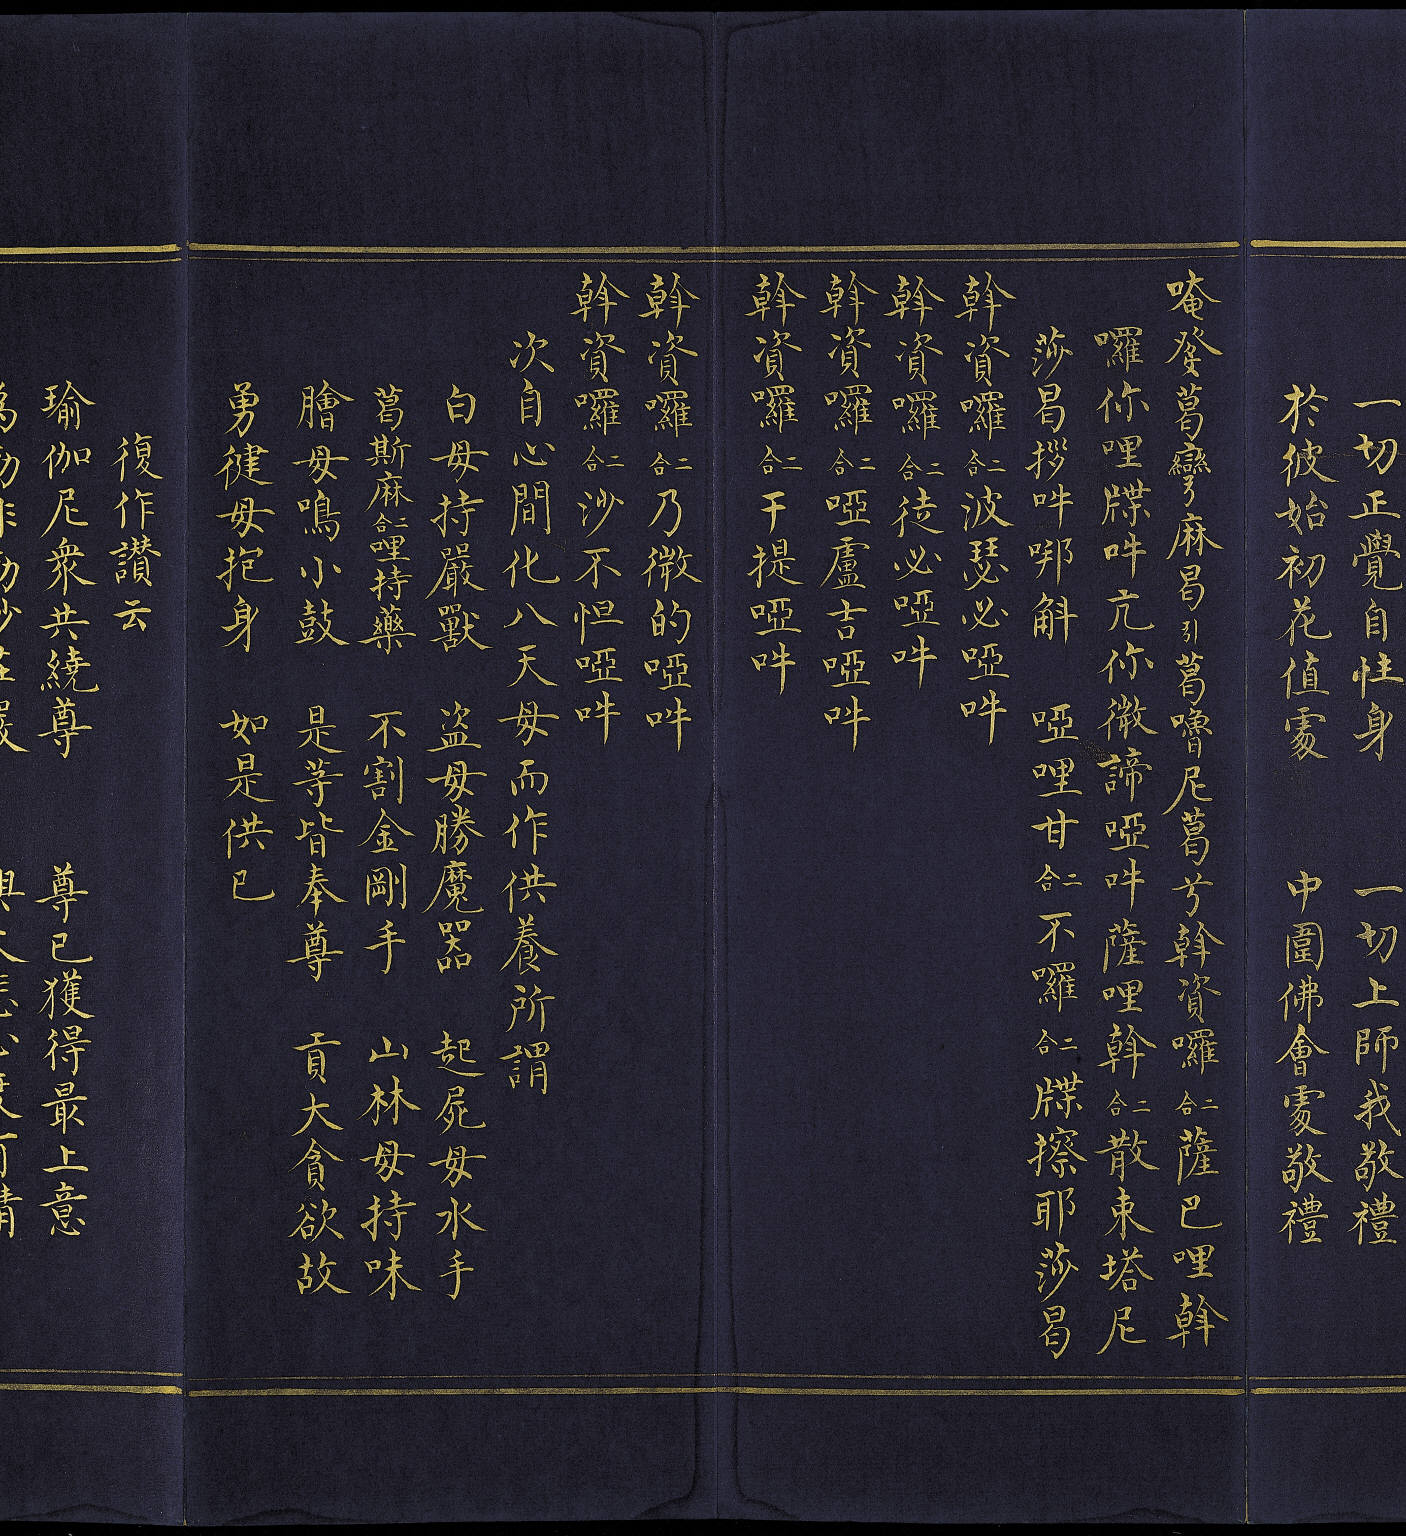 一切正覺自性身　一切上師我敬禮
於彼始初花值處　中圍佛會處敬禮
唵癹葛孌麻曷引葛嚕尼葛兮斡資囉二合薩巴哩斡
囉你哩牒吽亢你微諦啞吽薩哩斡二合散東塔尼
莎曷拶吽㘄斛　啞哩甘二合不囉二合牒擦耶莎曷
斡資囉二合波瑟必啞吽
斡資囉二合徒必啞吽
斡資囉二合啞盧吉啞吽
斡資囉二合干提啞吽
斡資囉二合乃微的啞吽
斡資囉二合沙不怛啞吽
次自心間化八天母而作供養所謂
白母持嚴獸　盜母勝魔器　起屍母水手
葛斯麻二合哩持藥　不割金剛手　山林母持味
膾母鳴小鼓　是等皆奉尊　貢大貪欲故
勇健母抱身　如是供已
復作讃云
瑜伽尼衆共繞尊　尊已獲得最上意